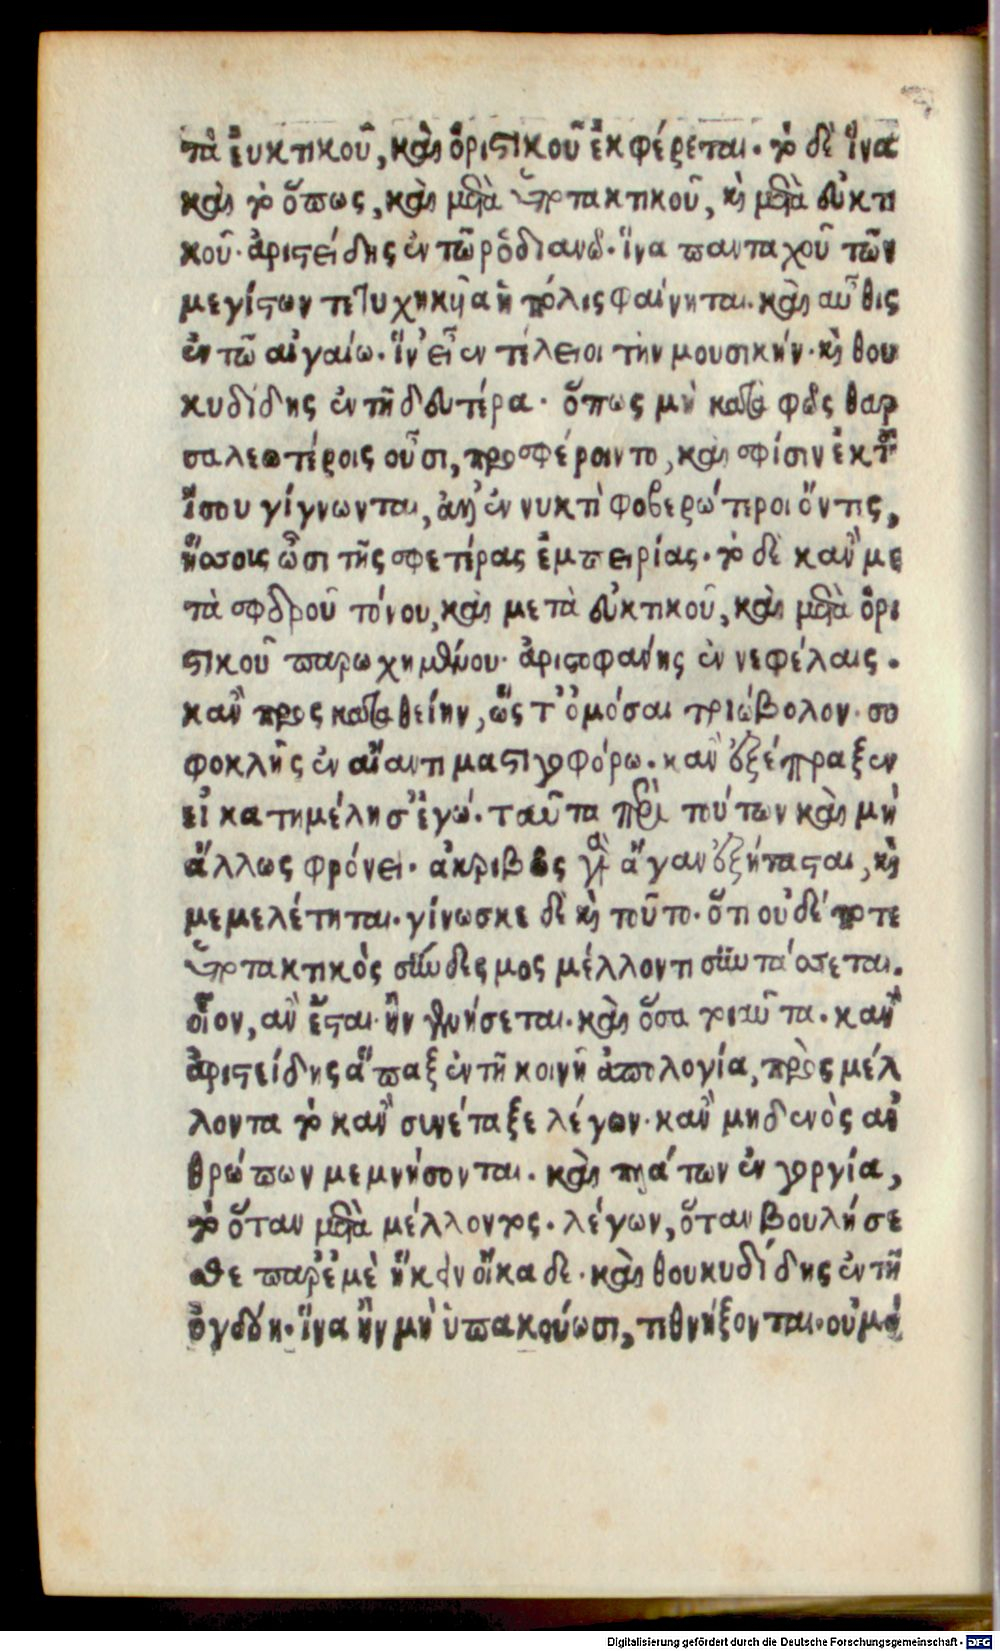 τὰ ἐυκτικοῦ, καὶ ὁριστικοῦ ἐκφέρεται. τὸ δὲ ἵνα
καὶ τὸ ὅπως, καὶ μετὰ ὑποτακτικοῦ, κὴ μετὰ εὐκτι
κοῦ. ἀριστείδης ἐν τῶ ῥοδιανῶ. ἵνα πανταχοῦ τῶν
μεγίστων τετυχηκυῖα ἡ πόλις φαίνηται. καὶ αὖθις
ἐν τῶ αἰγαίω. ἵν' εἶεν τέλειοι τὴν μουσικήν. κὴ θου
κυδίδης ἐν τῆ δευτέρα. ὅπως μὴ κατὰ φῶς θαρ
σαλεωτέροις οὖσι, προσφέροιντο, καὶ σφίσιν ἐκ τοῦ
ἴσου γίγνωνται, ἀλλ' ἐν νυκτὶ φοβερώτεροι ὄντες,
ἥσσους ὦσι τῆς σφετέρας ἐμπειρίας. τὸ δὲ κἂν με
τὰ σφοδροῦ τόνου, καὶ μετὰ εὐκτικοῦ, καὶ μετὰ ὁρι
στικοῦ παρωχημένου. ἀριστοφάνης ἐν νεφέλαις.
κἂν προσκαταθείην, ὥς τ' ὀμόσαι τριώβολον. σο
φοκλῆς ἐν αἴαντι μαστιγοφόρω. κἂν ἐξέπραξεν
εἰ κατημέλησ' ἐγώ. ταῦτα περὶ τούτων καὶ μὴ
ἄλλως φρόνει. ἀκριβῶς γὰρ ἄγαν ἐξήτασται, κὴ
μεμελέτηται. γίνωσκε δὲ κὴ τοῦτο. ὅτι οὐδέποτε
ὑποτακτικὸς σύνδεσμος μέλλοντι συντάσσεται.
οἷον, ἂν ἔσται. ἢν γενήσεται. καὶ ὅσα τοιαῦτα. κἂν
ἀριστείδης ἅπαξ ἐν τῆ κοινῆ ἀπολογία, πρὸς μέλ
λοντα τὸ κἂν συνέταξε λέγων. κἂν μηδενὸς ἀν
θρώπων μεμνήσονται. καὶ πλάτων ἐν γοργία,
τὸ ὅταν μετὰ μέλλοντος. λέγων, ὅταν βουλήσε
σθε παρ' ἐμὲ ἥκειν οἴκαδε. καὶ θουκυδίδης ἐν τῆ
ὀγδόη. ἵνα ἢν μὴ ὑπακούωσι, τεθνήξονται. οὐ μὰ
Digitalisierung gefördert durch die Deutsche Forschungsgemeinschaft - DFG